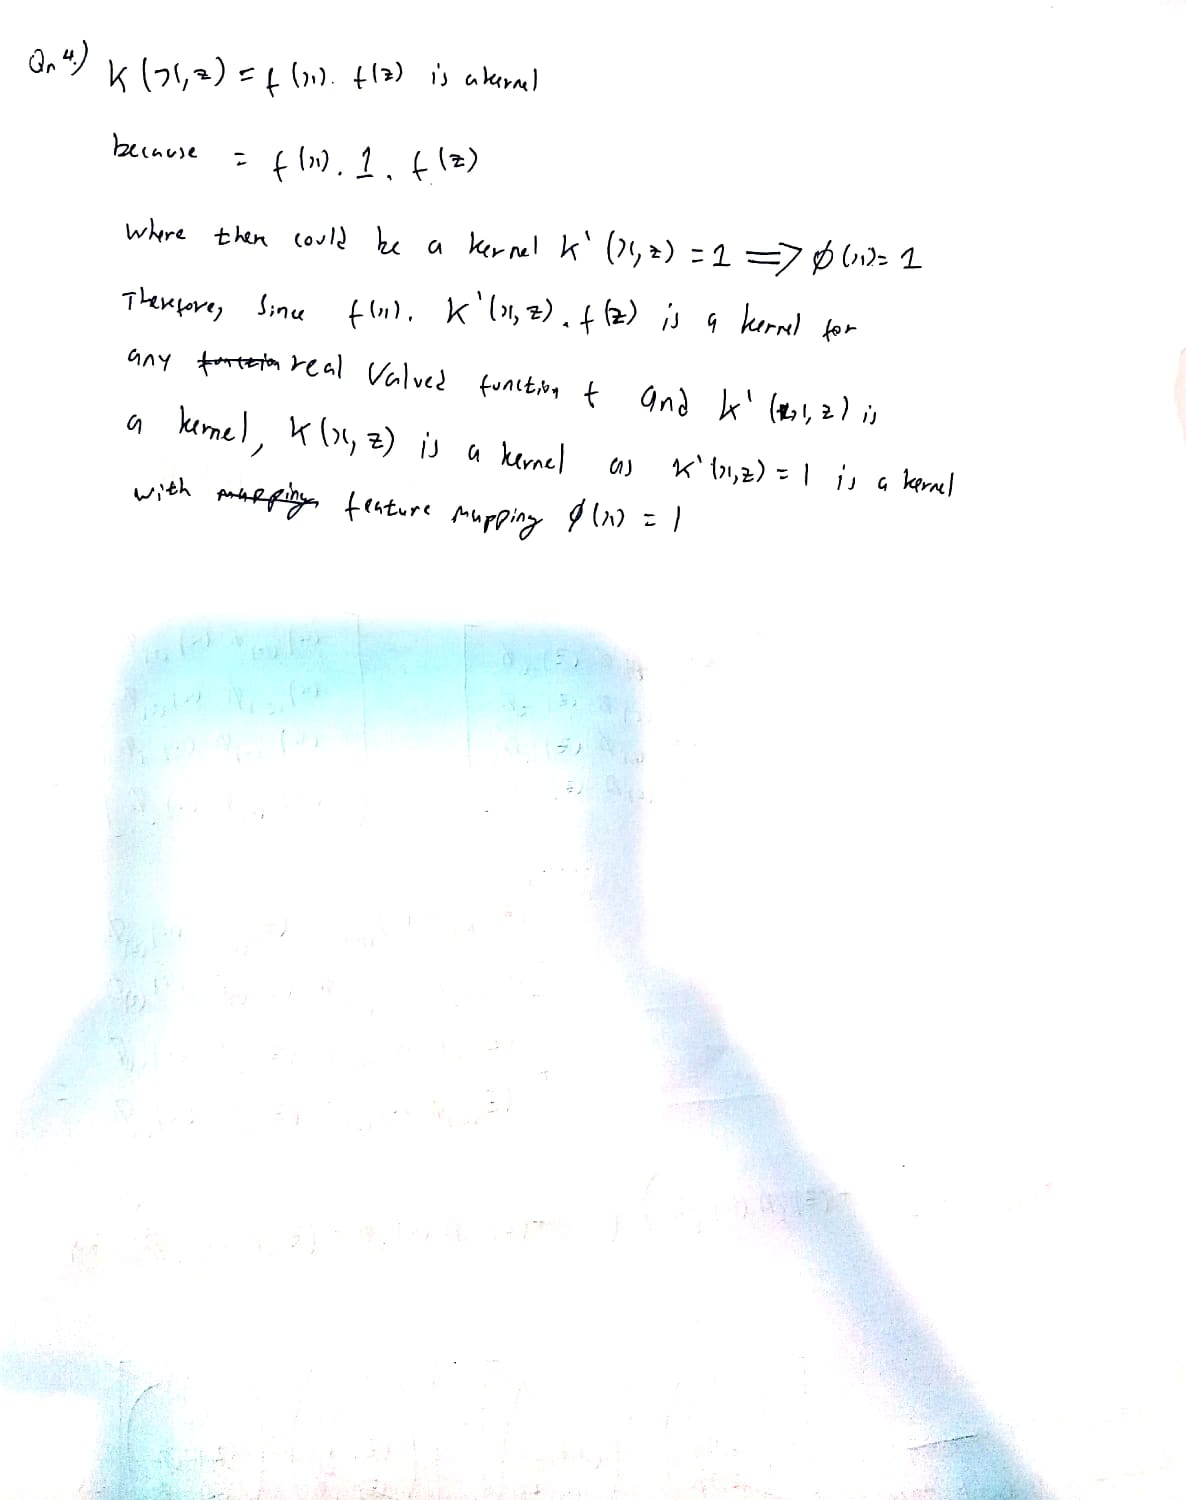 Qn 4.) K(x, z) = f(x). f(z) is a kernel
because = f(x). 1. f(z)
where then could be a kernel K'(x, z) = 1 => φ(x) = 1
Therefore, Since f(x). K'(x, z). f(z) is a kernel for
any real valued function f and K'(x, z) is
a kernel, K(x, z) is a kernel as K'(x, z) = 1 is a kernel
with feature mapping φ(x) = 1